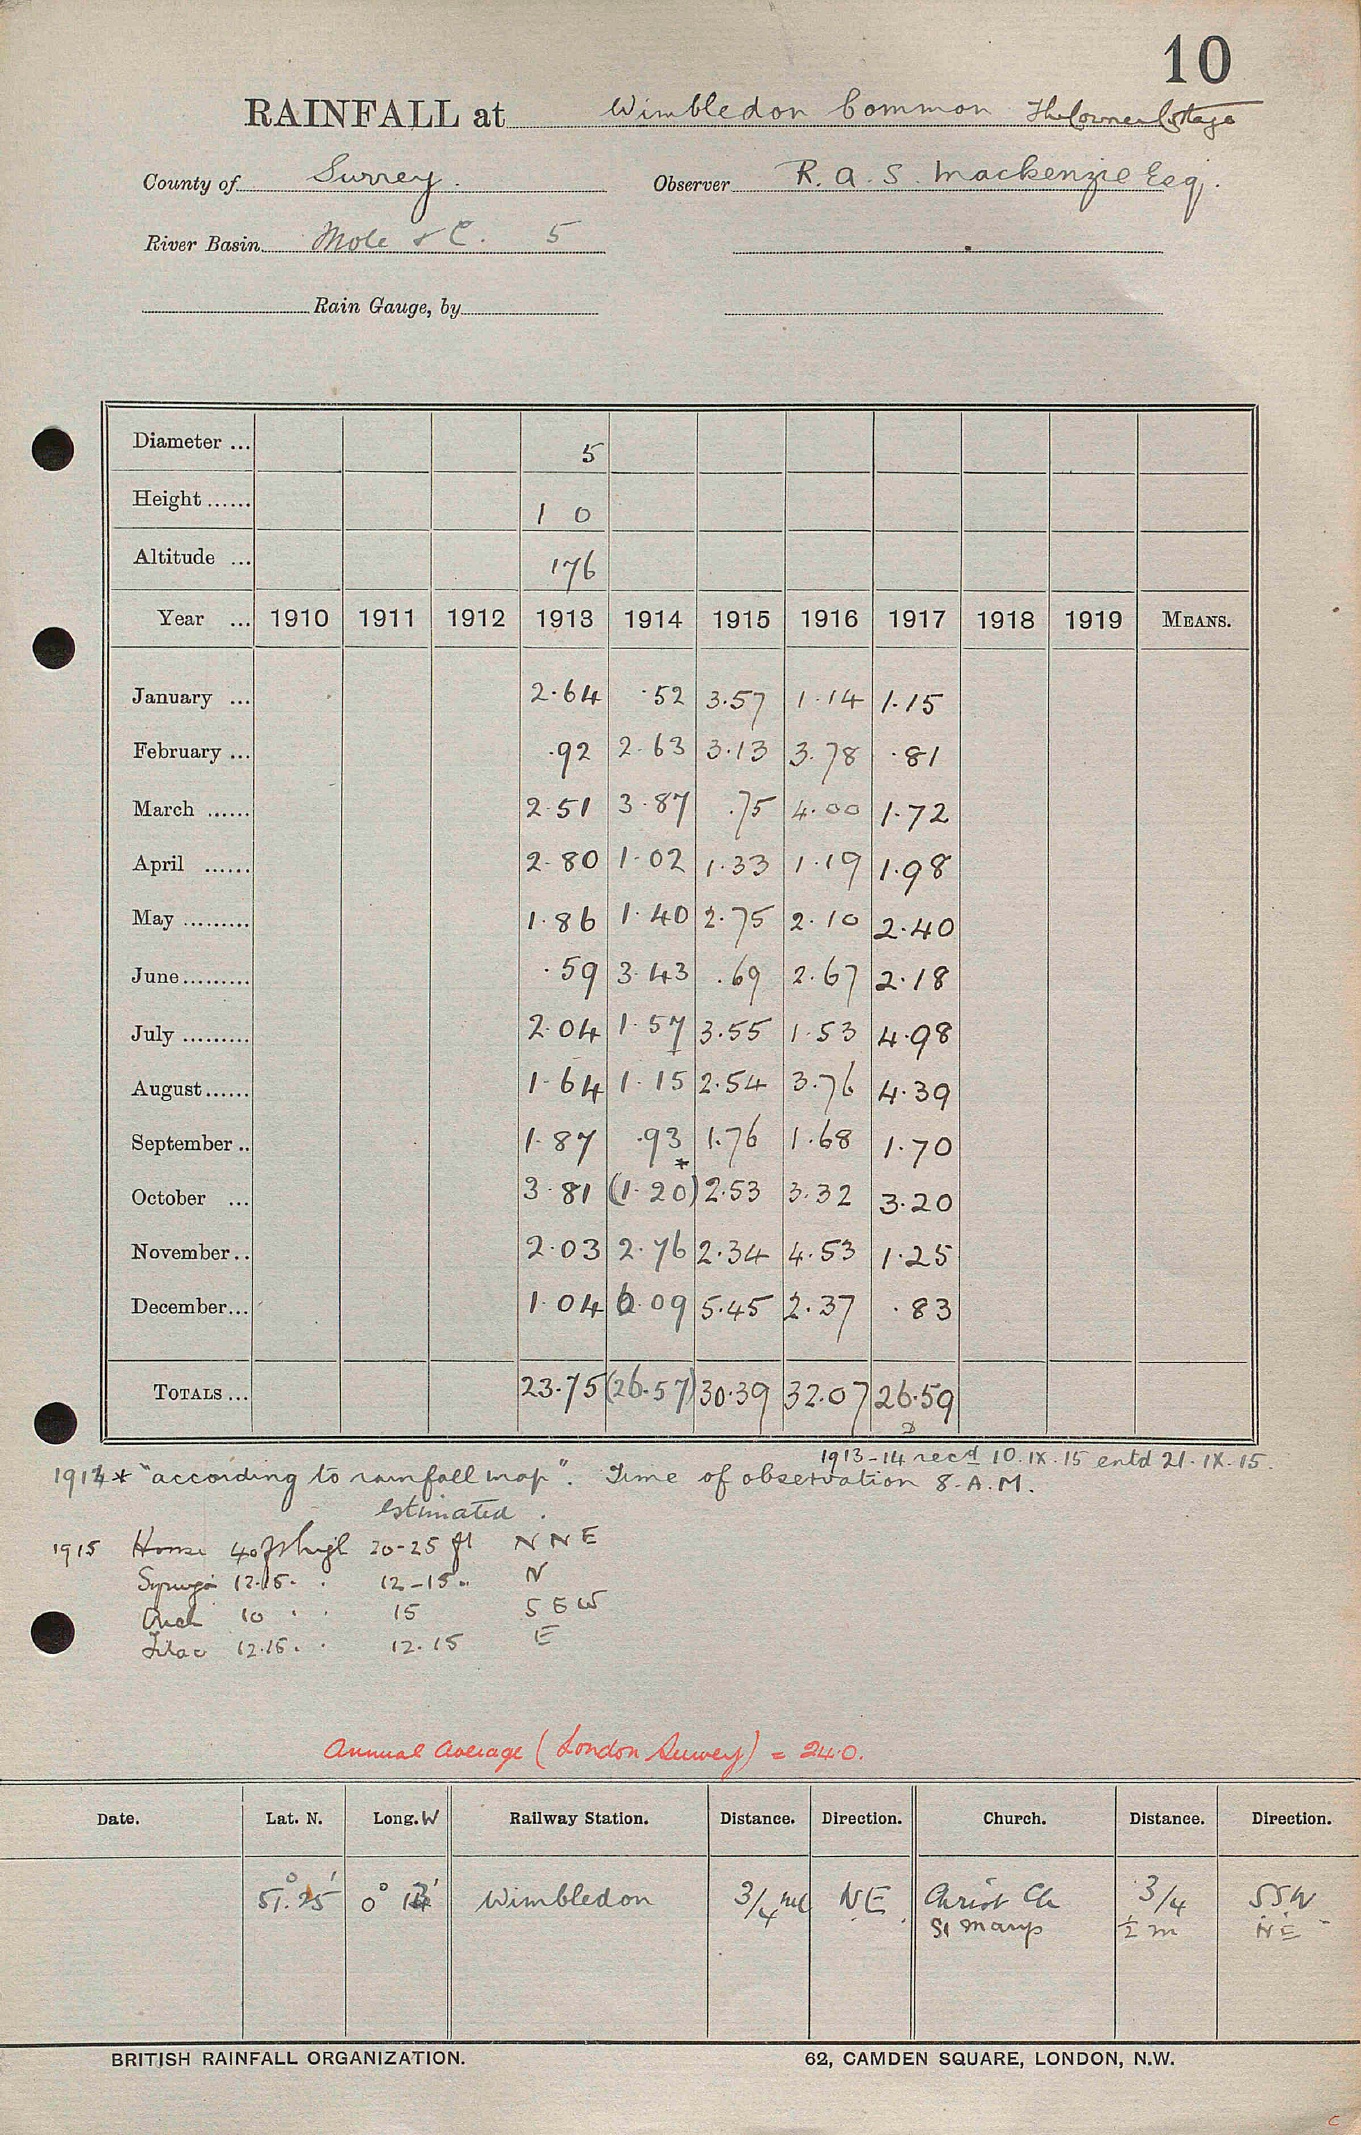 10
RAINFALL at Wimbledon Common The Corner Cottage
County of Surrey. Observer R. A. S. Mackenzie Esq.
River Basin Mole & C. 5
Rain Gauge, by
Diameter ... 5
Height ...... 1 0
Altitude ... 176
Year ... 1910 1911 1912 1913 1914 1915 1916 1917 1918 1919 MEANS.
January ... 2.64 .52 3.57 1.14 1.15
February ... .92 2.63 3.13 3.78 .81
March ...... 2.51 3.87 .75 4.00 1.72
April ...... 2.80 1.02 1.33 1.19 1.98
May ......... 1.86 1.40 2.75 2.10 2.40
June ......... .59 3.43 .69 2.67 2.18
July ......... 2.04 1.57 3.55 1.53 4.98
August ...... 1.64 1.15 2.54 3.76 4.39
September .. 1.87 .93 1.76 1.68 1.70
October ... 3.81 (1.20)* 2.53 3.32 3.20
November .. 2.03 2.76 2.34 4.53 1.25
December ... 1.04 6.09 5.45 2.37 .83
TOTALS ... 23.75 (26.57) 30.39 32.07 26.59
1913-14 recd 10.IX.15 entd 21.IX.15.
1914 * "according to rainfall map". Time of observation 8.A.M.
estimated.
1915 House 40 ft high 20-25 ft N N E
Syringa 12.15. . 12-15 .. N
10 . . 15 S E W
Lilac 12.15. . 12.15 E
Annual Average (London Survey) = 24.0.
Date. Lat. N. Long. W Railway Station. Distance. Direction. Church. Distance. Direction.
51.°25' 0° 13' Wimbledon 3/4 ml NE Christ Ch 3/4 SSW
St Marys ½ m NE
BRITISH RAINFALL ORGANIZATION. 62, CAMDEN SQUARE, LONDON, N.W.
C